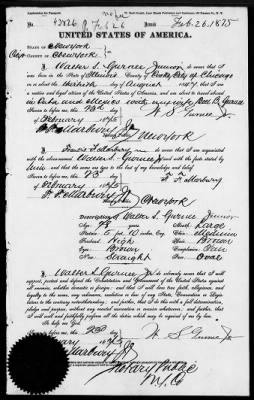 43826
Feb. 26. 1875
UNITED STATES OF AMERICA.
STATE OF New York
COUNTY OF New York
I, Walter S. Gurnee Junior do swear that I was
born in the State of Illinois County of Cook, City of Chicago
on the day of August 1847, that I am
a native and loyal citizen of the United States of America, and about to travel
abroad with my wife Bell B. Gurnee
Sworn to before me, this 23d day
of February 1875
W. S. Gurnee Jr.
F. F. Marbury Jr.
Notary Public
New York
I, Francis F. Marbury do swear that I am
acquainted with the above-named Walter S. Gurnee Jr. and with the facts stated by
him
Sworn to before me, this 23 day
of February 1875
F. F. Marbury
F. F. Marbury Jr.
New York
Description of Walter S. Gurnee Junior
Age 28 years
Mouth Large
Stature 5 ft. 10 inches, Eng.
Chin Medium
Forehead High
Hair Brown
Eyes Brown
Complexion Fair
Nose Straight
Face Oval
I, Walter S. Gurnee Jr. do solemnly swear that I will
support, protect and defend the Constitution and Government of the United States against
all enemies, whether domestic or foreign; and that I will bear true faith, allegiance, and
loyalty to the same, any ordinance, resolution or law of any State, Convention or Legis-
lature to the contrary notwithstanding; and further, that I do this with a full determination,
pledge and purpose, without any mental reservation or evasion whatsoever; and further, that
I will well and faithfully perform all the duties which may be required of me by law.
So help me God.
Sworn to before me, this 23d day
of February 1875
W. S. Gurnee Jr.
F. F. Marbury Jr.
Notary Public
N.Y. Co